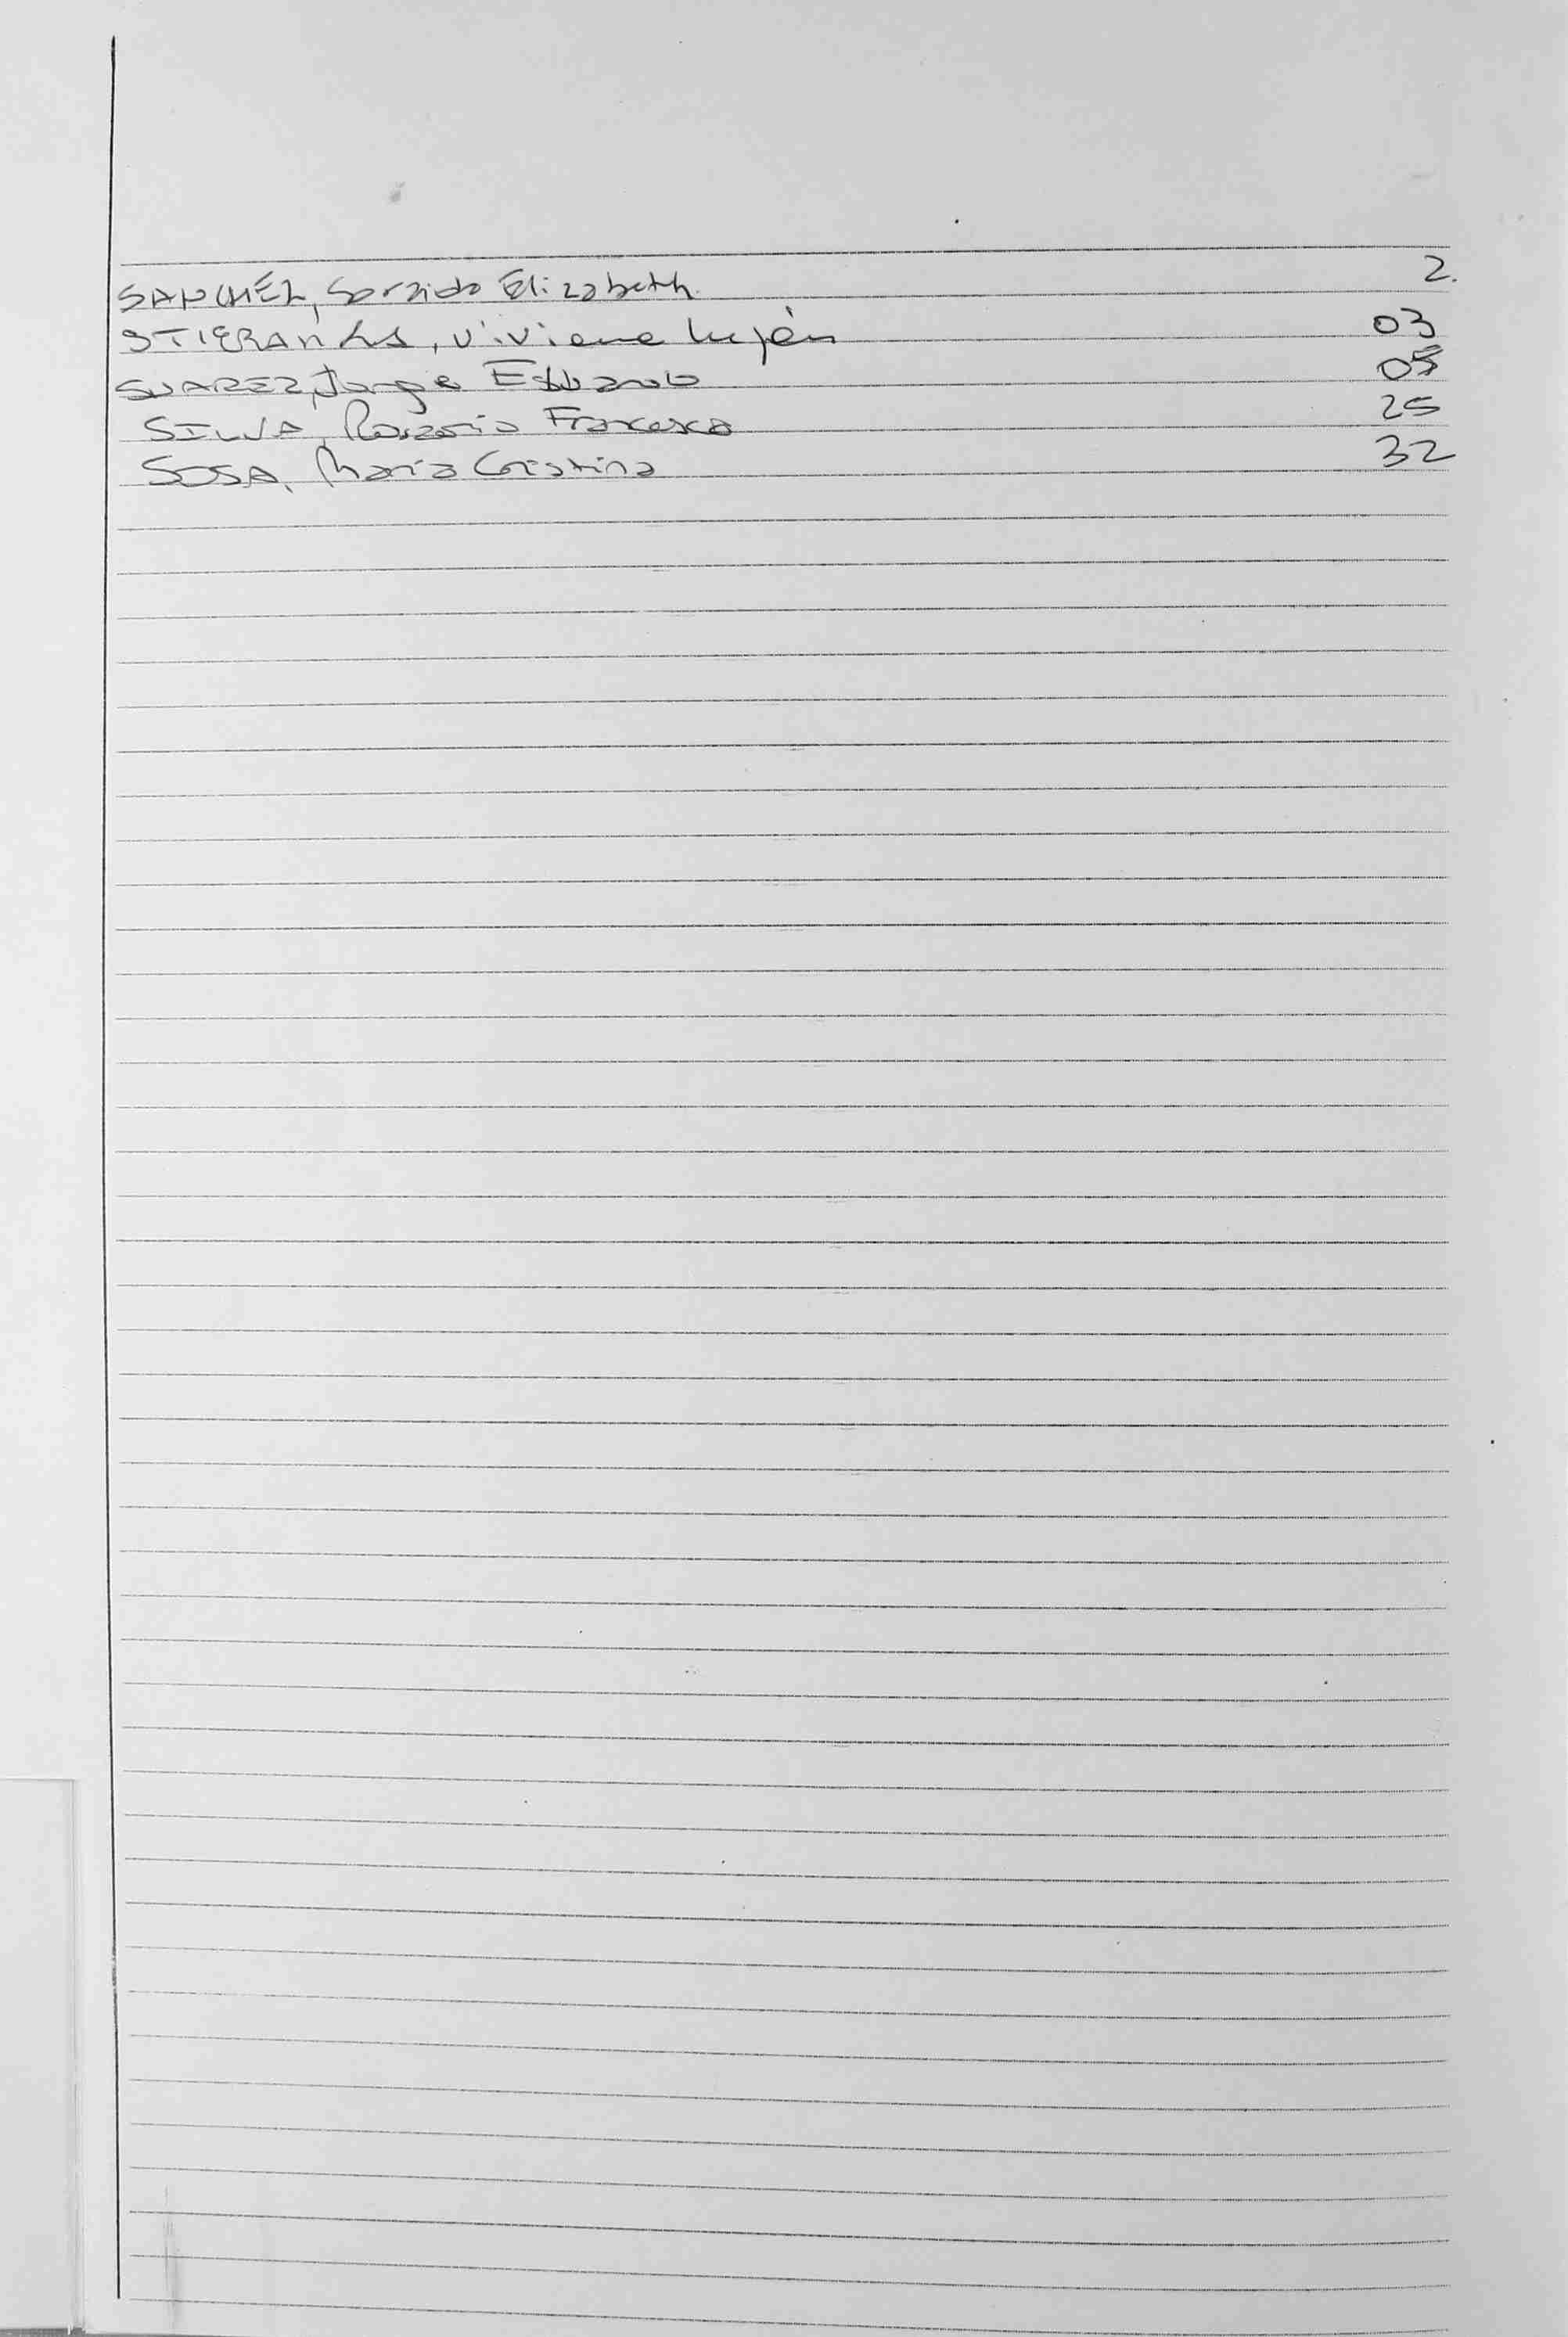 SANCHEZ, Soraida Elizabeth. 2.
Viviana Luján 03
SUAREZ, Jorge Eduardo 05
SILVA, Rosario Francesca 25
SOSA, María Cristina 32